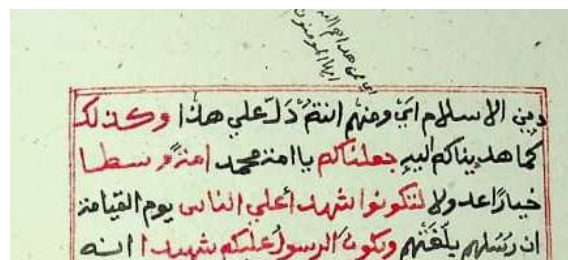 اي ممن هداهم الله
ايها المومنون
دين الاسلام اي ومنهم انتم دل علي هذا وكذلك
كما هديناكم اليه جعلناكم يا امة محمد امة وسطا
خيارا عدولا لتكونوا شهدا علي الناس يوم القيامة
ان رسلهم بلغتهم ويكون الرسول عليكم شهيدا انه